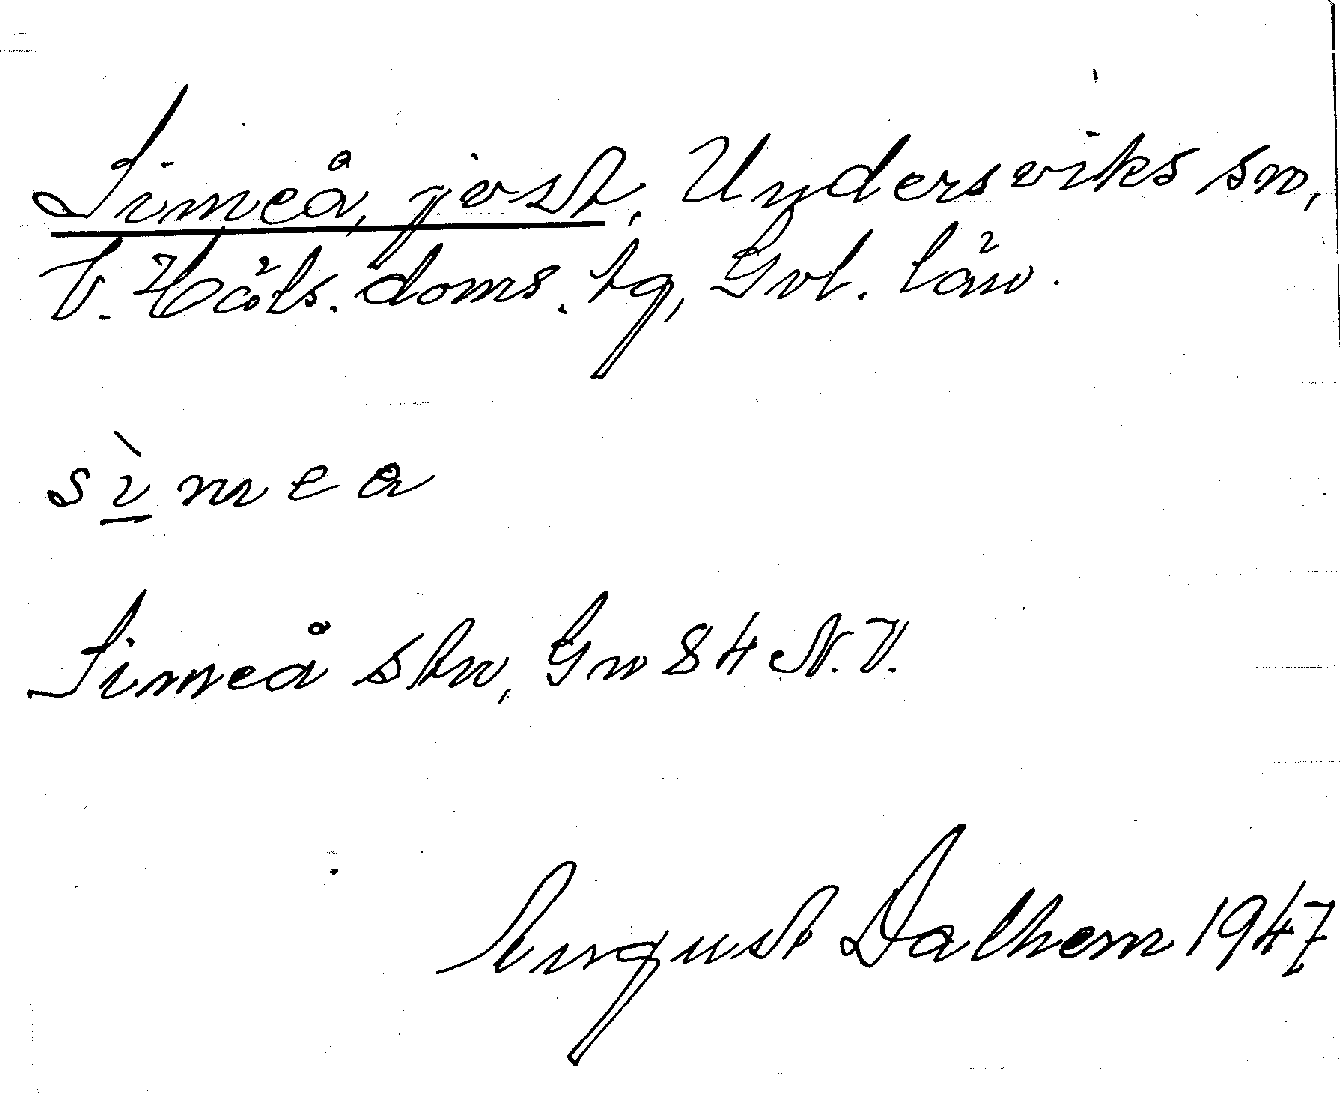 Simeå, jvst, Undersviks sn,
V. Häls. doms. tg, Gvl. län.
sìmea
Simeå stn, Gn 84 N.V.
August Dalhem 1947